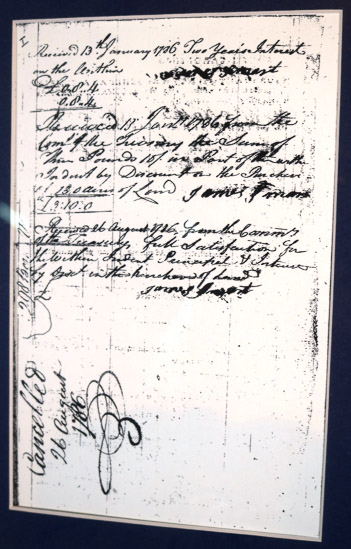 Received 13th January 1786 Two Years Interest
on the within
£0.8.4
0.8.4
Received 13 Jany 1786 from the
Comrs of the Treasury the Sum of
Three Pounds 10/ in Part of the within
Indent by Discount on the Purchase
of 130 acres of Land James
£3:10:0
Received 26 August 1786 from the Commrs
of the Treasury full Satisfaction for
the within Indent Principal & Interest
by Discot in the Purchase of Land
James
Cancelled
26 August
1786